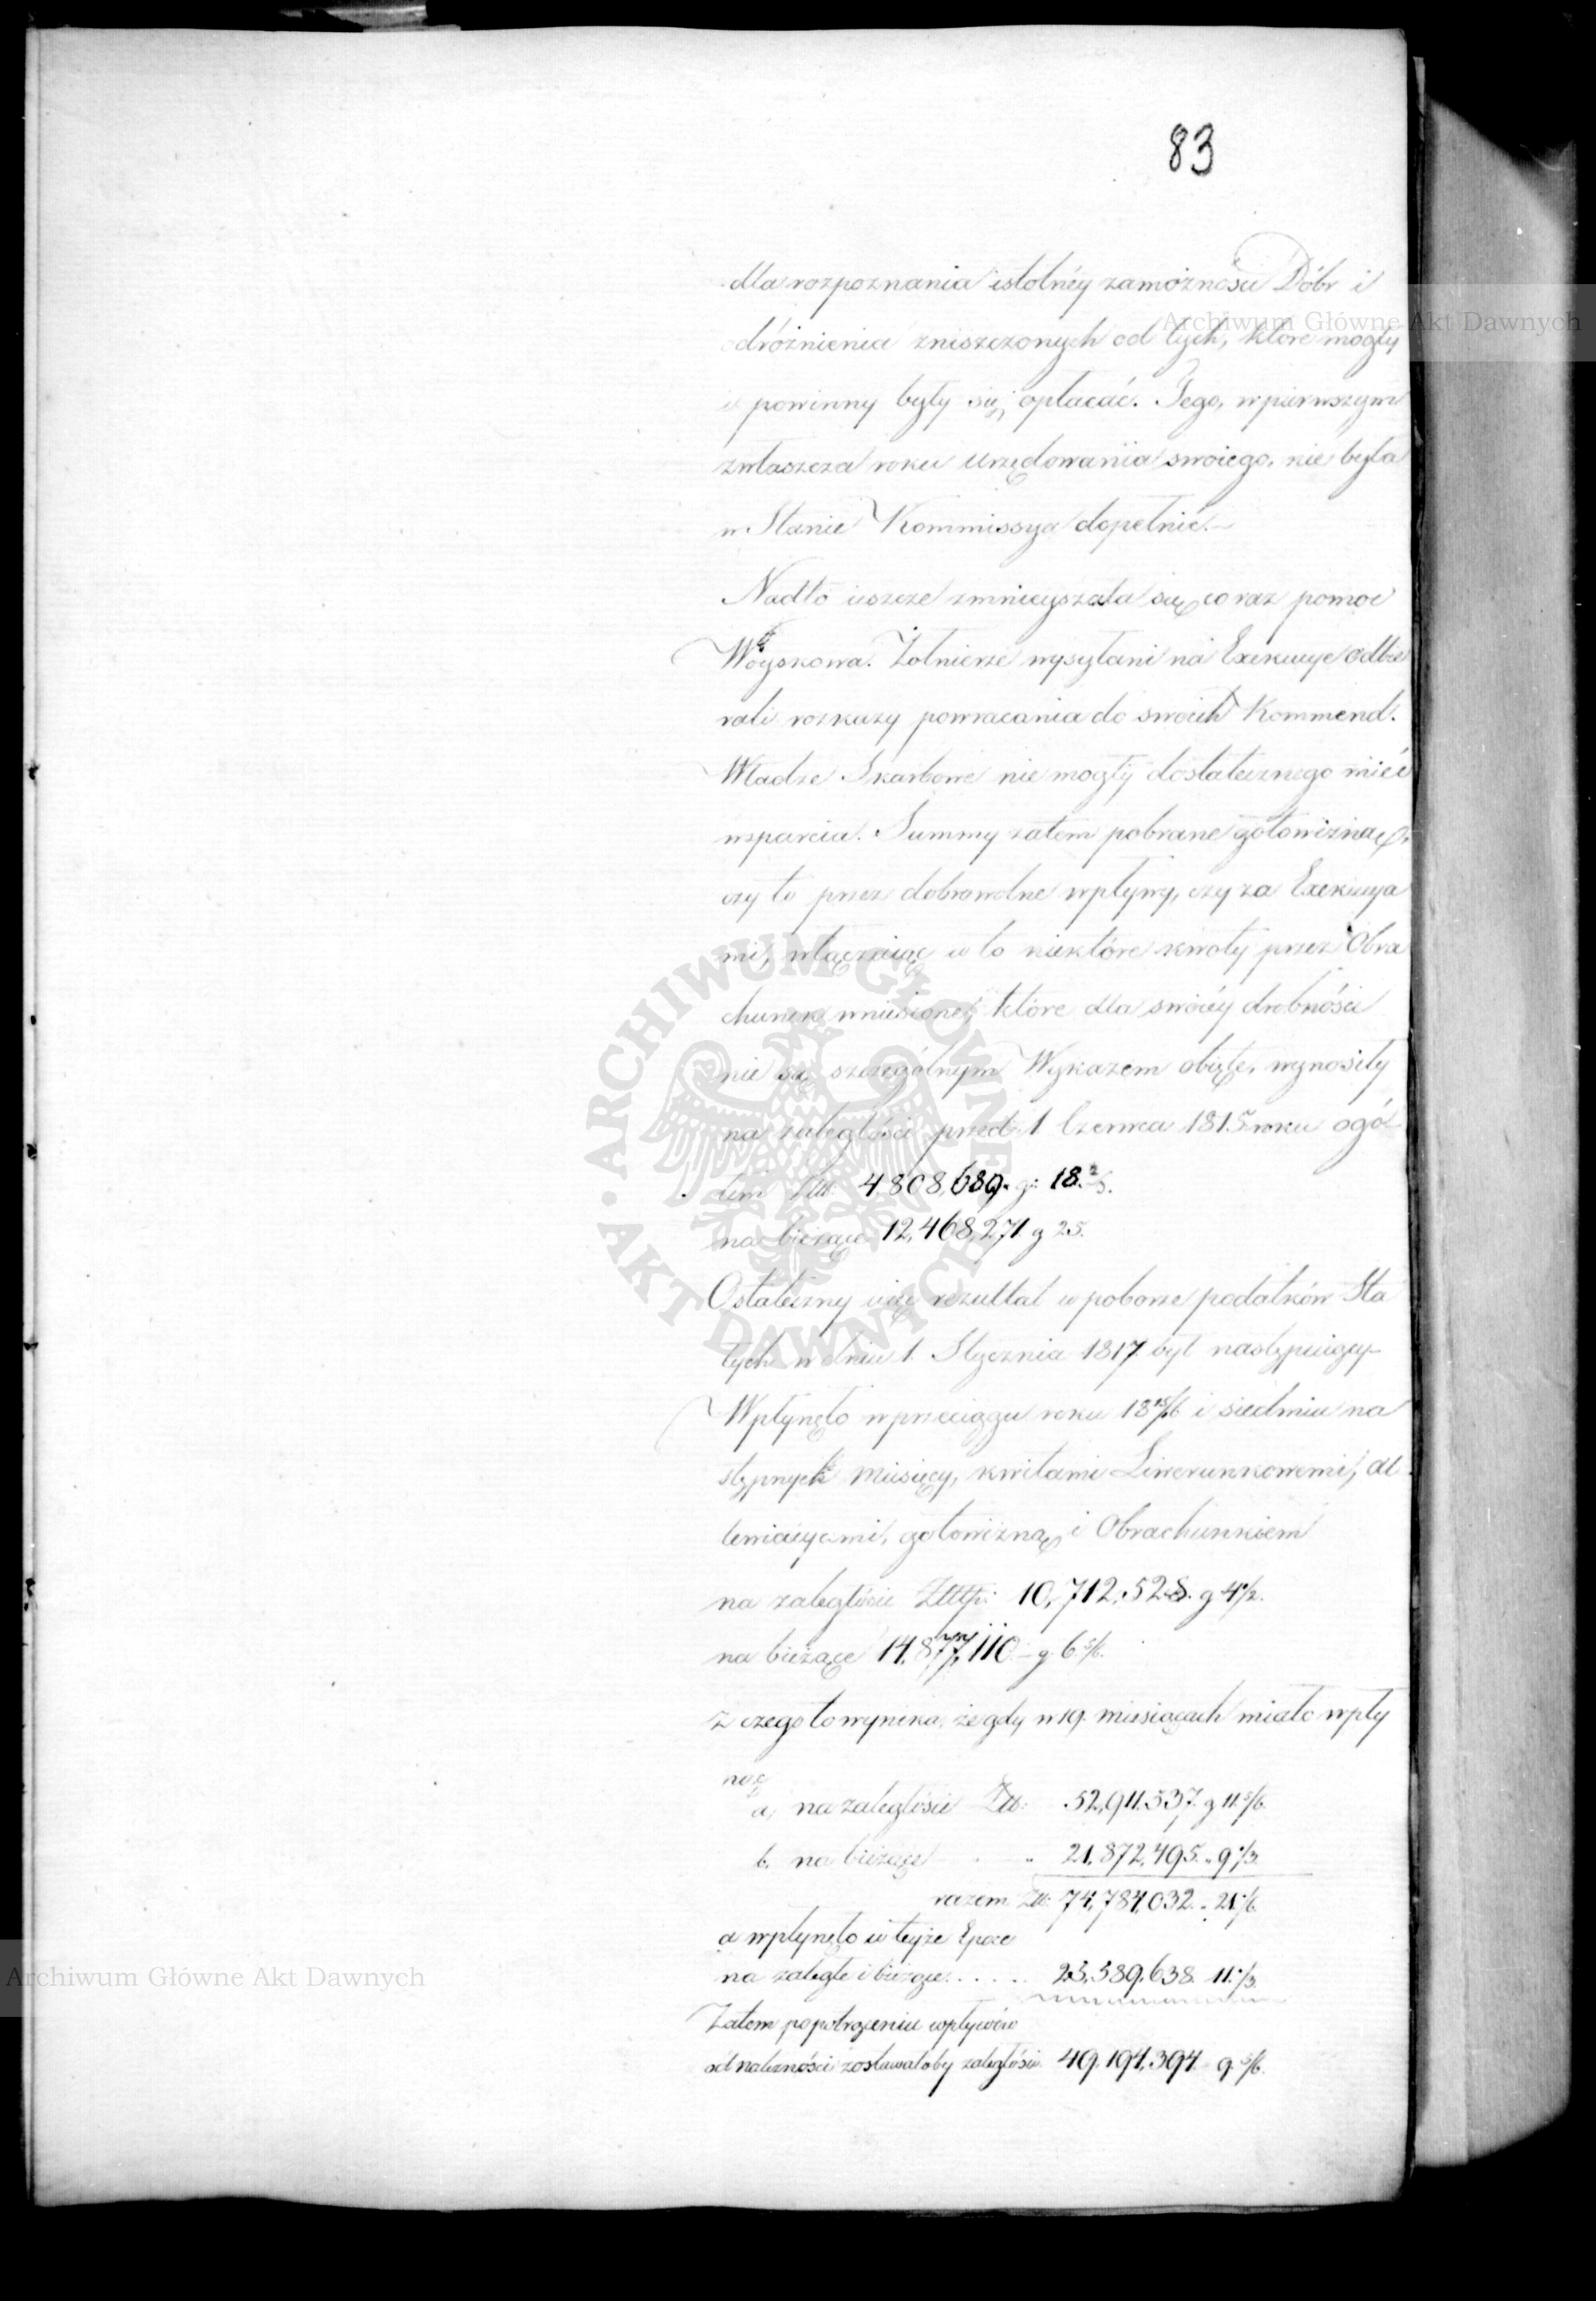 83
dla rozpoznania istotnéy zamożności Dóbr i
odróżnienia zniszczonych od tych, które mogły
i powinny były się opłacać. Tego, w pierwszym
zwłaszcza roku urzędowania swoiego, nie była
w Stanie Kommissya dopełnić.
Nadto ieszcze zmnieyszała się coraz pomoc
Woyskowa. Żołnierze wysyłani na Exekucye odbie
rali rozkazy powracania do swoich Kommend.
Władze Skarbowe nie mogły dostatecznego mieć
wsparcia. Summy zatem pobrane gotowizną,
czy to przez dobrowolne wpływy, czy za Exekucya
mi, włączaiąc w to niektóre kwoty przez Obra
chunek wniesione, które dla swoiéy drobności
nie są szczególnym Wykazem obięte, wynosiły
na zaległości przed 1 Czerwca 1815 roku ogó
łem Złł. 4,808,689. g: 18 2/3.
na bieżące 12,468,271 g 25.
Ostateczny więc rezultat w poborze podatków Sta
łych w dniu 1. Stycznia 1817 był następuiący
Wpłynęło w przeciągu roku 18 15/16 i siedmiu na
stępnych Miesięcy, kwitami Liwerunkowemi, al
lewiacyami, gotowizną i Obrachunkiem
na zaległości Złłp: 10,712,528. g 4 1/2.
na bieżące 14,877,110 - g 6 5/6.
z czego to wynika, że gdy w 19. miesiącach miało wpły
nąć
a, na zaległości Złł: 52,911,537. g 11 5/6.
b, na bieżące " 21,872,495. " 9 1/3.
razem Złł: 74,784,032. " 21 1/6.
a wpłynęło w teyże Epoce
na zaległe i bieżące..... 25,589,638. 11 1/3.
Zatem po potrąceniu wpływów
od należności zostawałoby zaległości 49,194,394. 9 5/6.
Archiwum Główne Akt Dawnych
Archiwum Główne Akt Dawnych
ARCHIWUM GŁÓWNE AKT DAWNYCH · A·